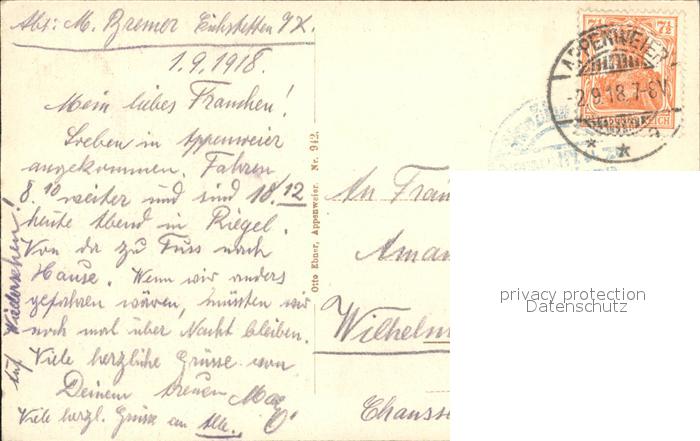 Abs: M. Bremer Eichstetten a/K.
1.9.1918.
Mein liebes Frauchen!
Soeben in Appenweier
angekommen. Fahren
8.10 weiter und sind 10.12
heute Abend in Riegel.
Von da zu Fuss nach
Hause. Wenn wir anders
gefahren wären, müssten wir
noch mal über Nacht bleiben.
Viele herzliche Grüsse von
Deinem treuen Max
Viele herzl. Grüsse an Alle.
Auf Wiedersehen!
Otto Ebner, Appenweier. Nr. 942.
7½ 7½
APPENWEIER
-2.9.18.7-8V.
An Frau
Aman
Wilhelm
Chausse
privacy protection
Datenschutz